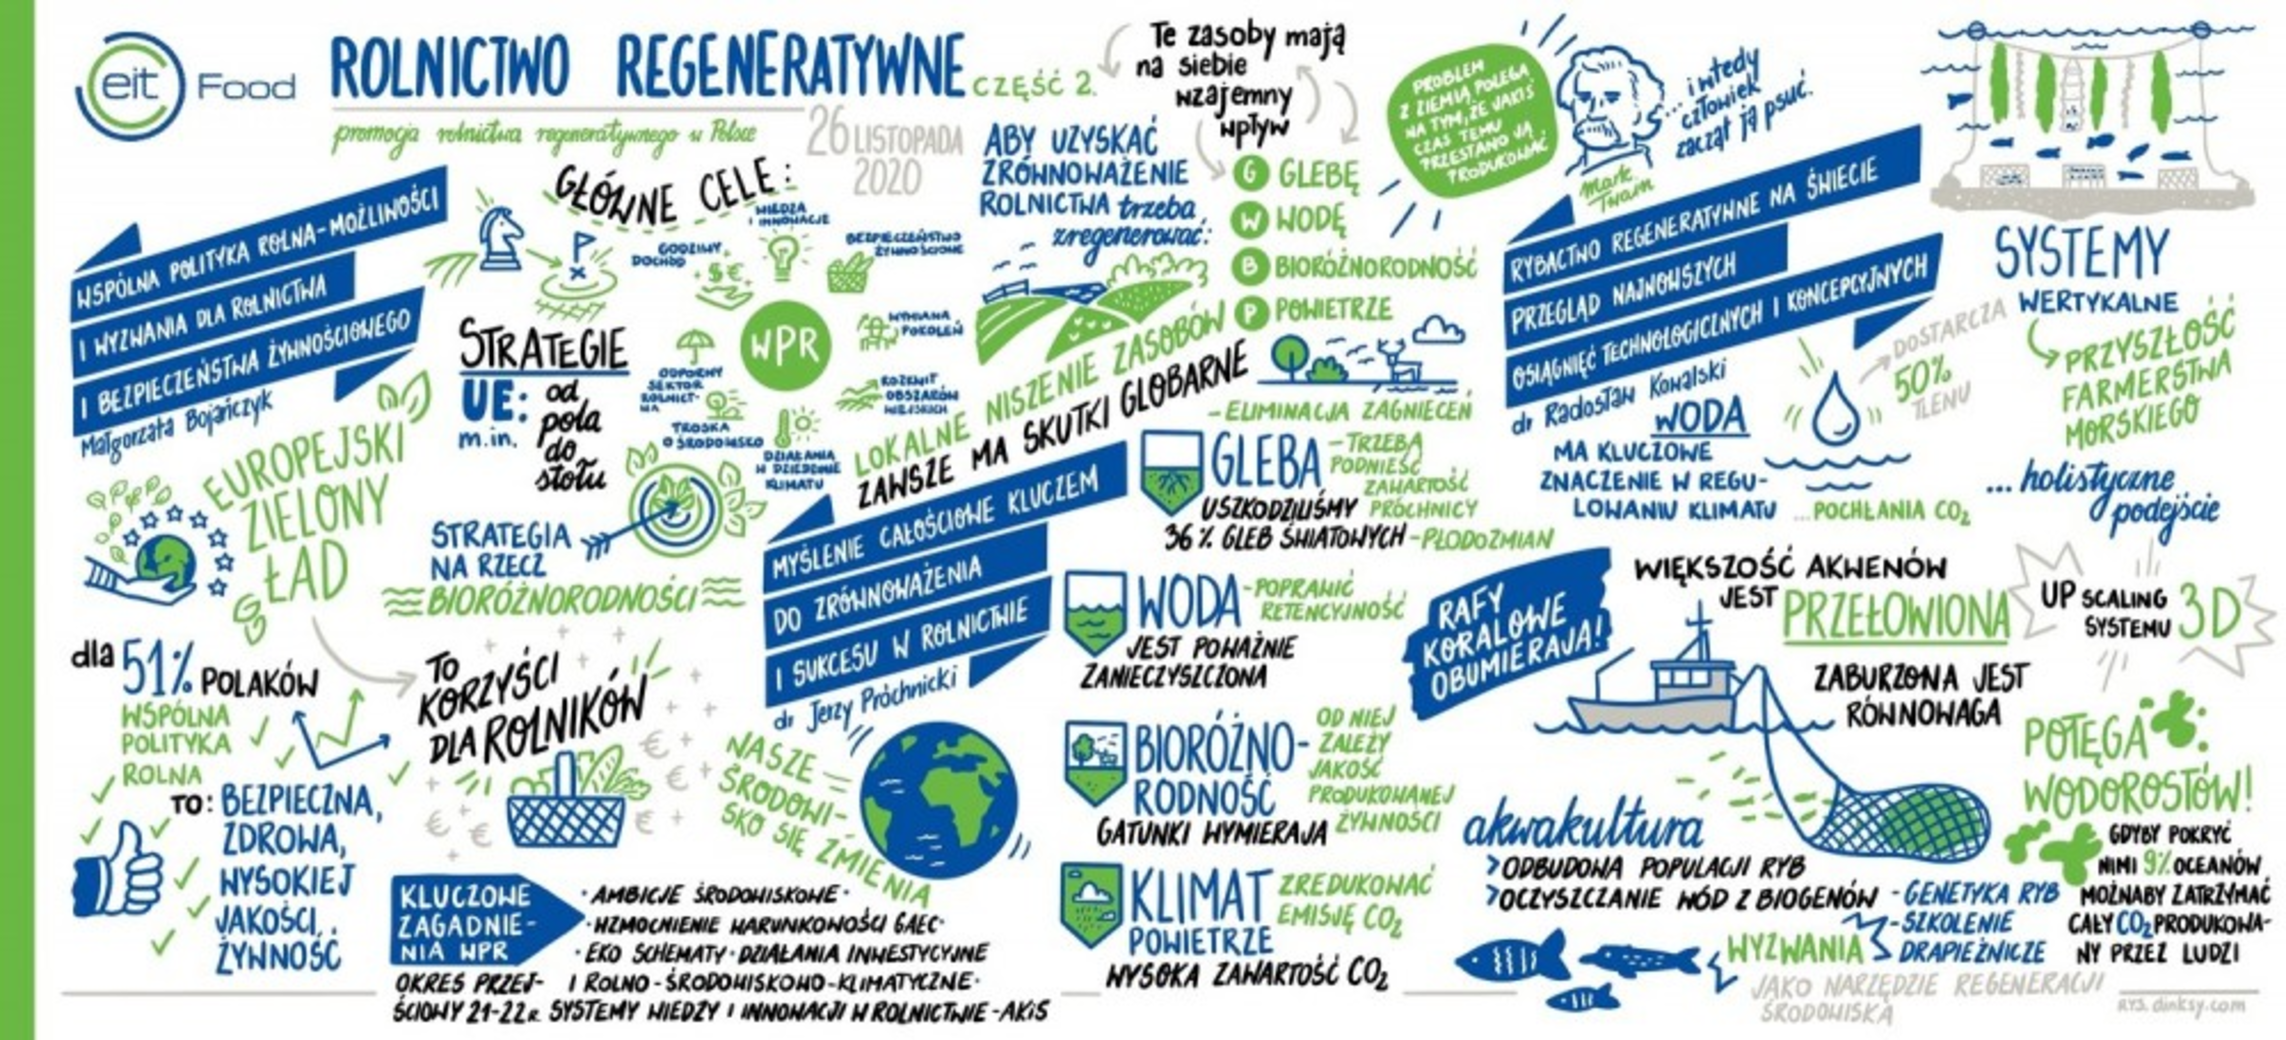 eit Food
ROLNICTWO REGENERATYWNE CZĘŚĆ 2.
promocja rolnictwa regeneratywnego w Polsce
26 LISTOPADA
2020
WSPÓLNA POLITYKA ROLNA-MOŻLIWOŚCI
I WYZWANIA DLA ROLNICTWA
I BEZPIECZEŃSTWA ŻYWNOŚCIOWEGO
Małgorzata Bojańczyk
EUROPEJSKI
ZIELONY
ŁAD
dla 51% POLAKÓW
WSPÓLNA
POLITYKA
ROLNA
TO: BEZPIECZNA,
ZDROWA,
WYSOKIEJ
JAKOŚCI,
ŻYWNOŚĆ
GŁÓWNE CELE:
WIEDZA
I INNOWACJE
GODZIWY
DOCHÓD
BEZPIECZEŃSTWO
ŻYWNOŚCIOWE
WPR
WYMIANA
POKOLEŃ
ODPORNY
SEKTOR
ROLNICT-
WA
ROZKWIT
OBSZARÓW
WIEJSKICH
TROSKA
O ŚRODOWISKO
DZIAŁANIA
W DZIEDZINIE
KLIMATU
STRATEGIE
UE:
m.in.
od
pola
do
stołu
STRATEGIA
NA RZECZ
BIORÓŻNORODNOŚCI
TO
KORZYŚCI
DLA ROLNIKÓW
KLUCZOWE
ZAGADNIE-
NIA WPR
· AMBICJE ŚRODOWISKOWE ·
· WZMOCNIENIE WARUNKOWOŚCI GAEC ·
· EKO SCHEMATY · DZIAŁANIA INWESTYCYJNE
I ROLNO-ŚRODOWISKOWO-KLIMATYCZNE ·
OKRES PRZEJ-
ŚCIOWY 21-22R. SYSTEMY WIEDZY I INNOWACJI W ROLNICTWIE -AKiS
ABY UZYSKAĆ
ZRÓWNOWAŻENIE
ROLNICTWA trzeba
zregenerować:
Te zasoby mają
na siebie
wzajemny
wpływ
G GLEBĘ
W WODĘ
B BIORÓŻNORODNOŚĆ
P POWIETRZE
LOKALNE NISZENIE ZASOBÓW
ZAWSZE MA SKUTKI GLOBARNE
MYŚLENIE CAŁOŚCIOWE KLUCZEM
DO ZRÓWNOWAŻENIA
I SUKCESU W ROLNICTWIE
dr Jerzy Próchnicki
NASZE
ŚRODOWI-
SKO SIĘ ZMIENIA
-ELIMINACJA ZAGNIECEŃ
GLEBA
-TRZEBA
PODNIEŚĆ
ZAWARTOŚĆ
PRÓCHNICY
USZKODZILIŚMY
36% GLEB ŚWIATOWYCH -PŁODOZMIAN
WODA
-POPRAWIĆ
RETENCYJNOŚĆ
JEST POWAŻNIE
ZANIECZYSZCZONA
BIORÓŻNO-
RODNOŚĆ
OD NIEJ
ZALEŻY
JAKOŚĆ
PRODUKOWANEJ
ŻYWNOŚCI
GATUNKI WYMIERAJA
KLIMAT
POWIETRZE
ZREDUKOWAĆ
EMISJĘ CO2
WYSOKA ZAWARTOŚĆ CO2
PROBLEM
Z ZIEMIĄ POLEGA
NA TYM, ŻE JAKIŚ
CZAS TEMU
PRZESTANO JĄ
PRODUKOWAĆ
...i wtedy
człowiek
zaczął ją psuć.
Mark
Twain
RYBACTWO REGENERATYWNE NA ŚWIECIE
PRZEGLĄD NAJNOWSZYCH
OSIĄGNIĘĆ TECHNOLOGICZNYCH I KONCEPCYJNYCH
dr Radosław Kowalski
WODA
MA KLUCZOWE
ZNACZENIE W REGU-
LOWANIU KLIMATU
DOSTARCZA
50%
TLENU
...POCHŁANIA CO2
SYSTEMY
WERTYKALNE
PRZYSZŁOŚĆ
FARMERSTWA
MORSKIEGO
... holistyczne
podejście
RAFY
KORALOWE
OBUMIERAJĄ!
WIĘKSZOŚĆ AKWENÓW
JEST PRZEŁOWIONA
ZABURZONA JEST
RÓWNOWAGA
UP SCALING
SYSTEMU 3D
POTĘGA
WODOROSTÓW!
GDYBY POKRYĆ
NIMI 9% OCEANÓW
MOŻNABY ZATRZYMAĆ
CAŁY CO2 PRODUKOWA-
NY PRZEZ LUDZI
akwakultura
>ODBUDOWA POPULACJI RYB
>OCZYSZCZANIE WÓD Z BIOGENÓW
WYZWANIA
-GENETYKA RYB
-SZKOLENIE
DRAPIEŻNICZE
JAKO NARZĘDZIE REGENERACJI
ŚRODOWISKA
RYS. dinksy.com